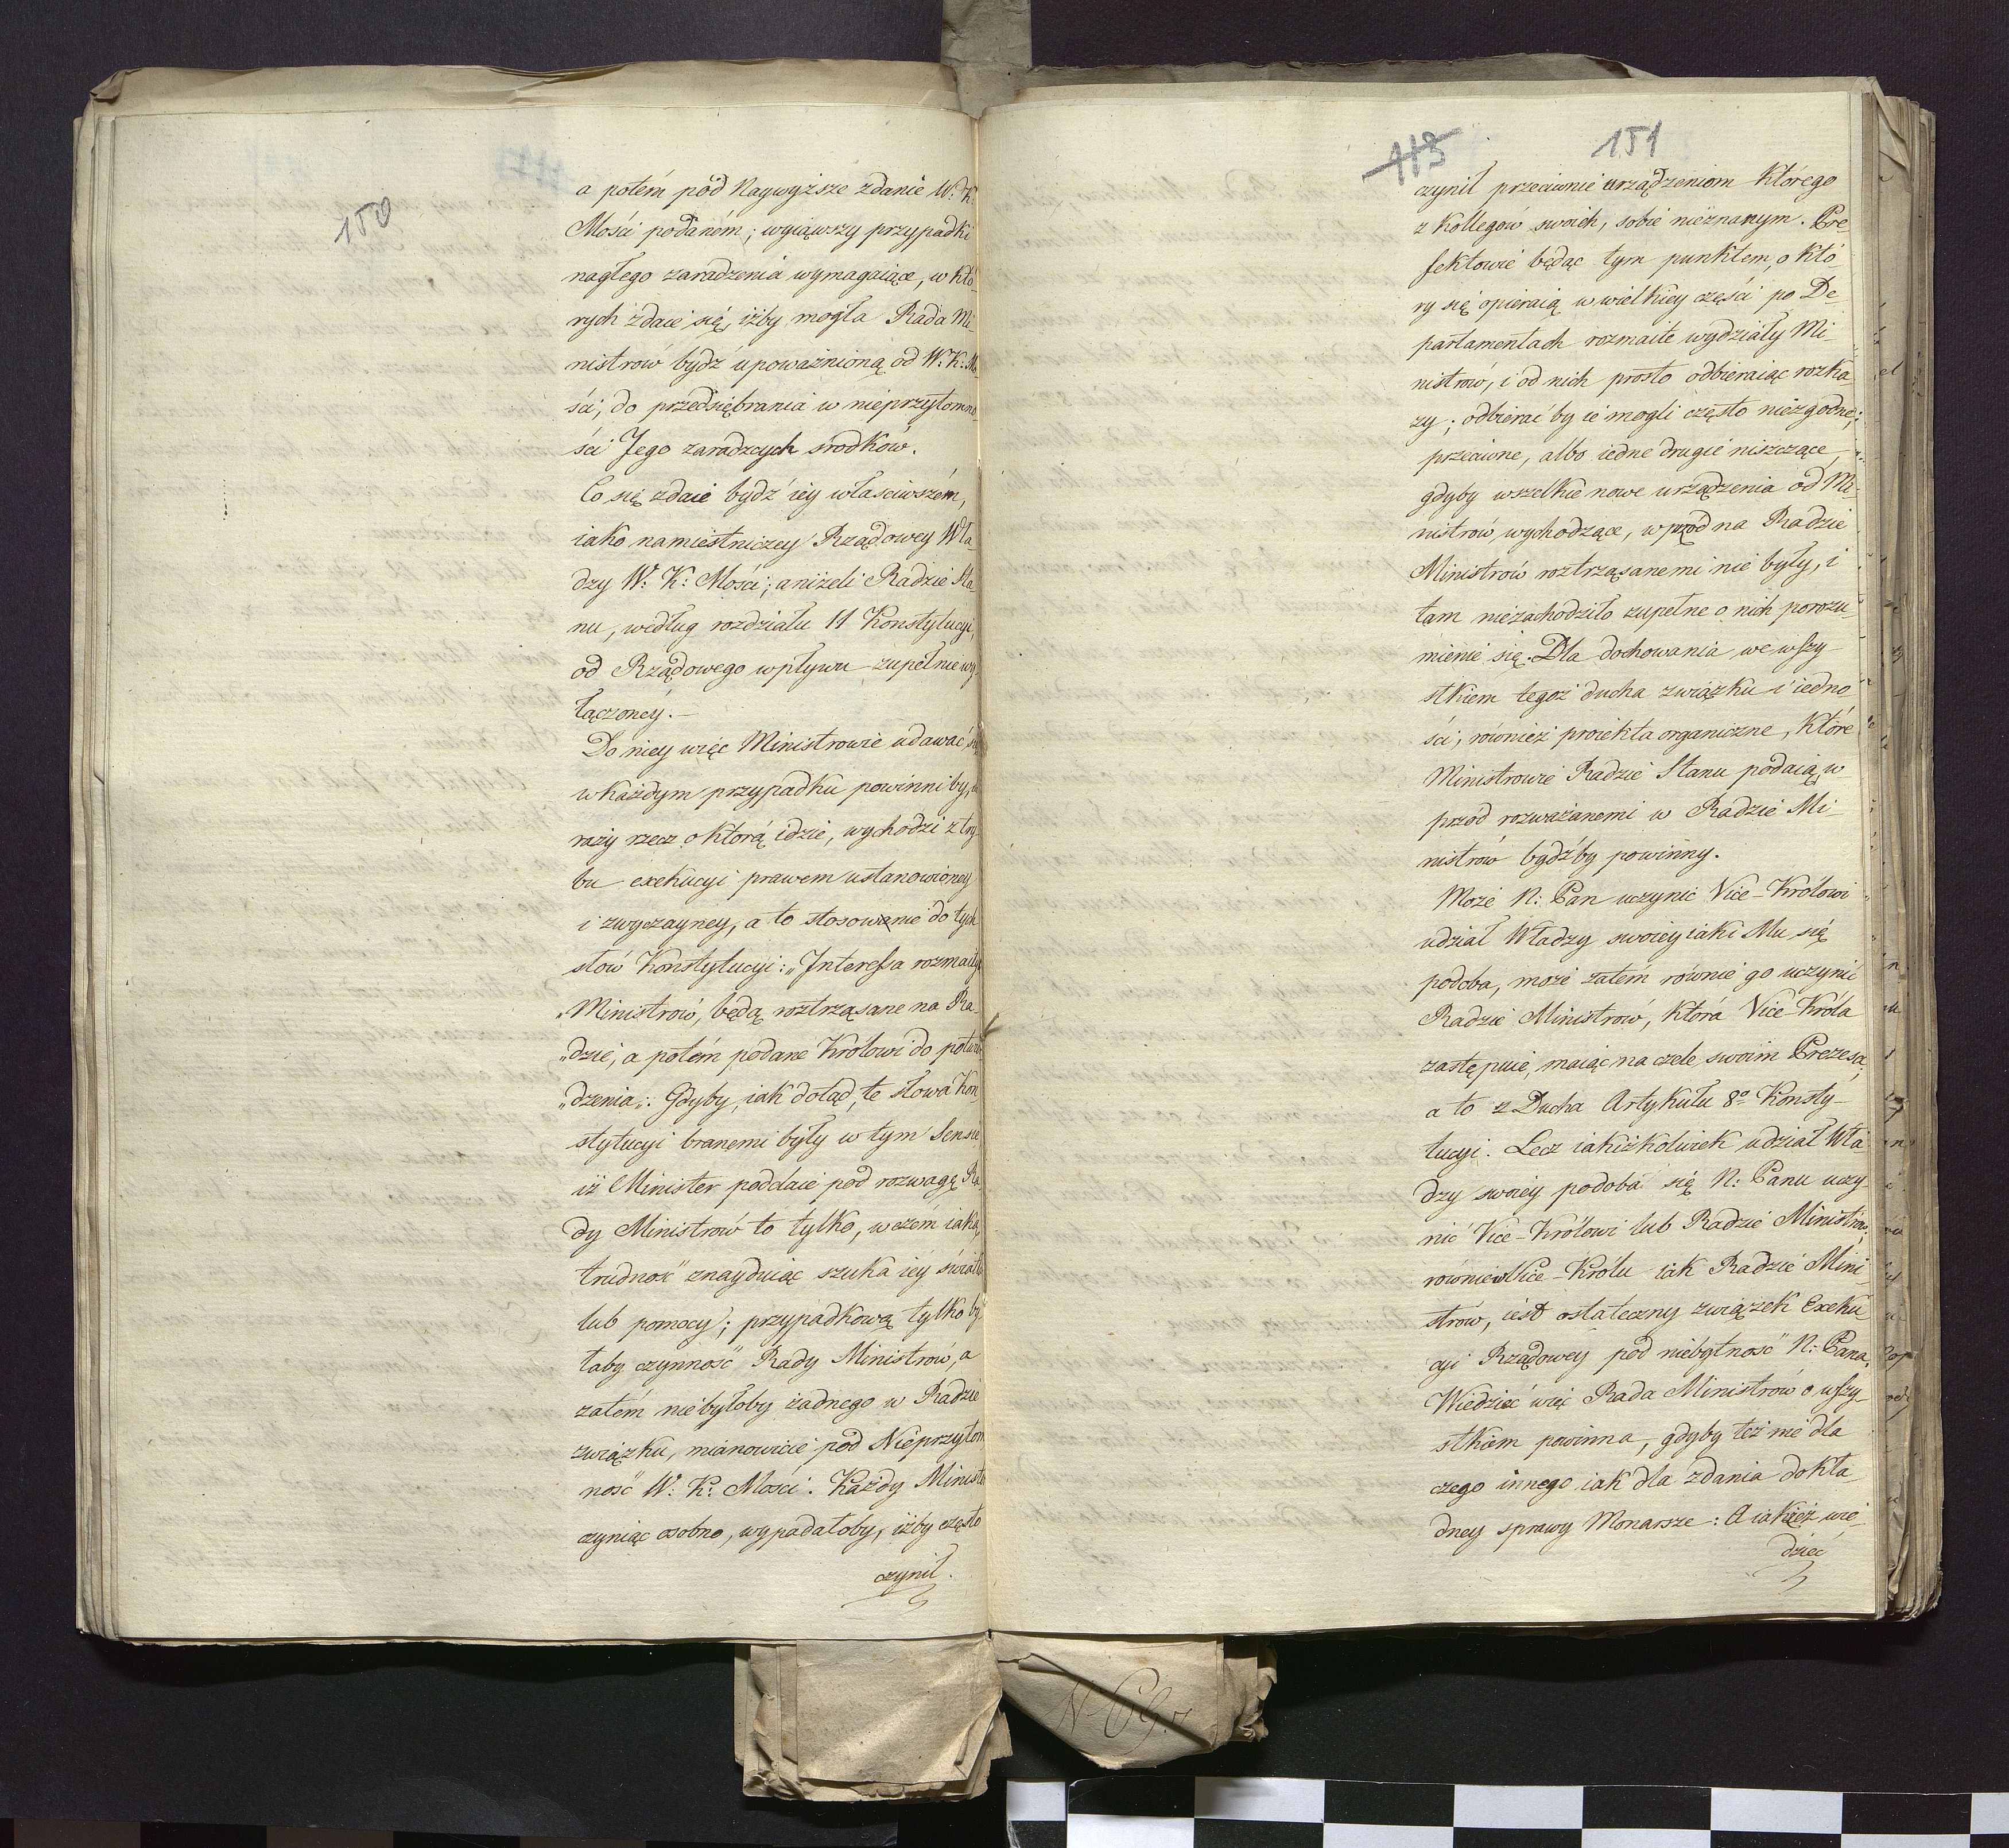 150
a potém pod Naywyższe zdanie W: K:
Mości podaném; wyiąwszy przypadki
nagłego zaradzenia wymagaiące, w któ-
rych zdaie się, iżby mogła Rada Mi-
nistrów bydź upoważnioną od W: K: Mo-
ści, do przedsiębrania w nieprzytomno-
ści Jego zaradczych środków.
Co się zdaie bydź iey właściwszém,
iako namiestniczey Rządowey Wła-
dzy W: K: Mości; aniżeli Radzie Sta-
nu, według rozdziału 11 Konstytucyi,
od Rządowego wpływu zupełnie wy-
łączoney.-
Do niey więc Ministrowie udawać się
w każdym przypadku powinniby,
razy rzecz o którą idzie, wychodzi z try-
bu exekucyi prawem ustanowioney
i zwyczayney, a to stosownie do tych
słów Konstytucyi: „Interessa rozmaitych
„Ministrów, będą roztrząsane na Ra-
„dzie, a potém podane Królowi do potwier-
„dzenia„. Gdyby, iak dotąd, te słowa Kon-
stytucyi branemi były w tym Sensie
iż Minister poddaie pod rozwagę Ra-
dy Ministrów to tylko, w czém iaką
trudność znayduiąc szuka iéy światła
lub pomocy; przypadkową tylko by-
łaby czynność Rady Ministrów, a
zatém niebyłoby żadnego w Radzie
związku, mianowicie pod Nieprzytom-
ność W: K: Mości. Każdy Minister
czyniąc osobno, wypadałoby, iżby często
czynił.
113 151
czynił przeciwnie urządzeniom którego
z Kollegów swoich, sobie nieznanym. Pre-
fektowie będąc tym punktem, o któ-
ry się opieraią w wielkiey części po De-
partamentach rozmaite wydziały Mi-
nistrów, i od nich prosto odbieraiąc rozka-
zy; odbierać by ie mogli często niezgodne,
przeciwne, albo iedne drugie niszczące,
gdyby wszelkie nowe urządzenia od Mi-
nistrów wychodzące, wprzód na Radzie
Ministrów roztrząsanemi nie były, i
tam niezachodziło zupełne o nich porozu-
mienie się. Dla dochowania we wszy-
stkiem tegoż ducha związku i iedno-
ści, również proiekta organiczne, które
Ministrowie Radzie Stanu podaią, w-
przód rozważanemi w Radzie Mi-
nistrów bydźby powinny.
Może N: Pan uczynić Vice-Królowi
udział Władzy swoiey iaki Mu się
podoba, może zatém równie go uczynić
Radzie Ministrów, która Vice-Króla
zastępuie, maiąc na czele swoim Prezesa,
a to z Ducha Artykułu 8º Konsty-
tucyi. Lecz iakiżkolwiek udział Wła-
dzy swoiéy podoba się N: Panu uczy-
nić Vice-Królowi lub Radzie Ministrów,
równie w Vice-Królu iak Radzie Mini-
strów, iest ostateczny związek Exeku-
cyi Rządowéy pod niebytność N: Pana.
Wiedzieć więc Rada Ministrów o wszy-
stkiem powinna, gdyby też nie dla
czego innego iak dla zdania dokła-
dney sprawy Monarsze: A iakież wie-
dzieć